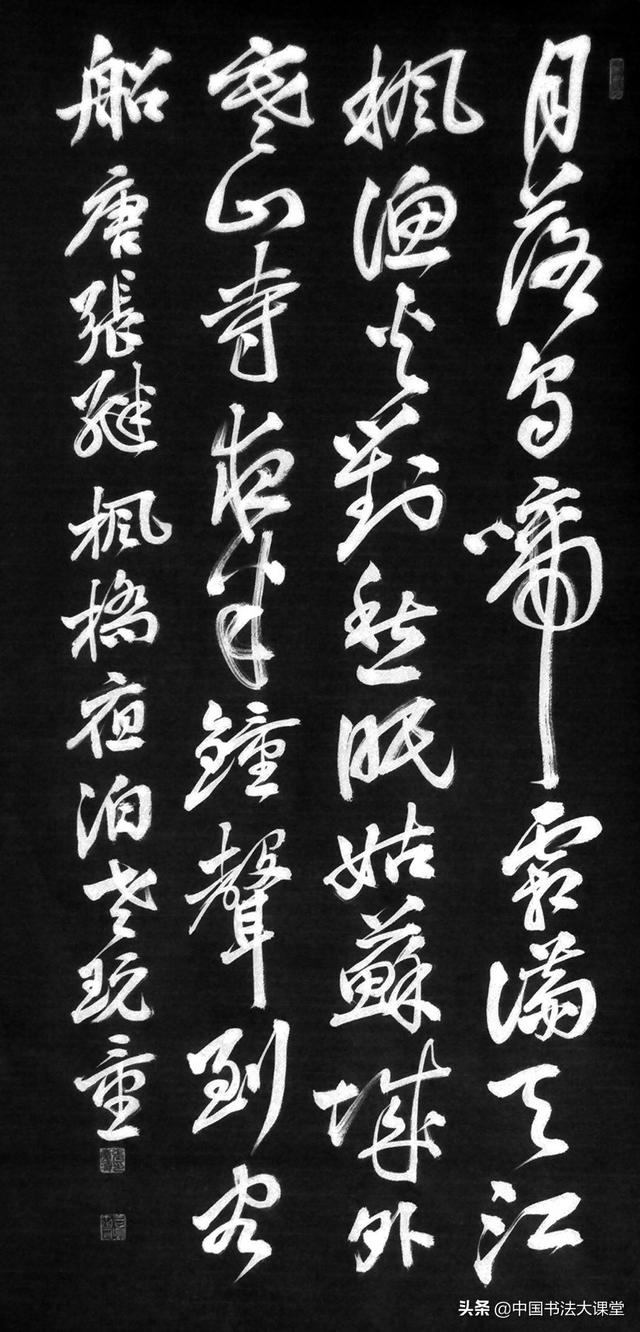 月落烏啼霜滿天江
楓漁火對愁眠姑蘇城外
寒山寺夜半鐘聲到客
船唐張繼楓橋夜泊老玩童
头条 @中国书法大课堂